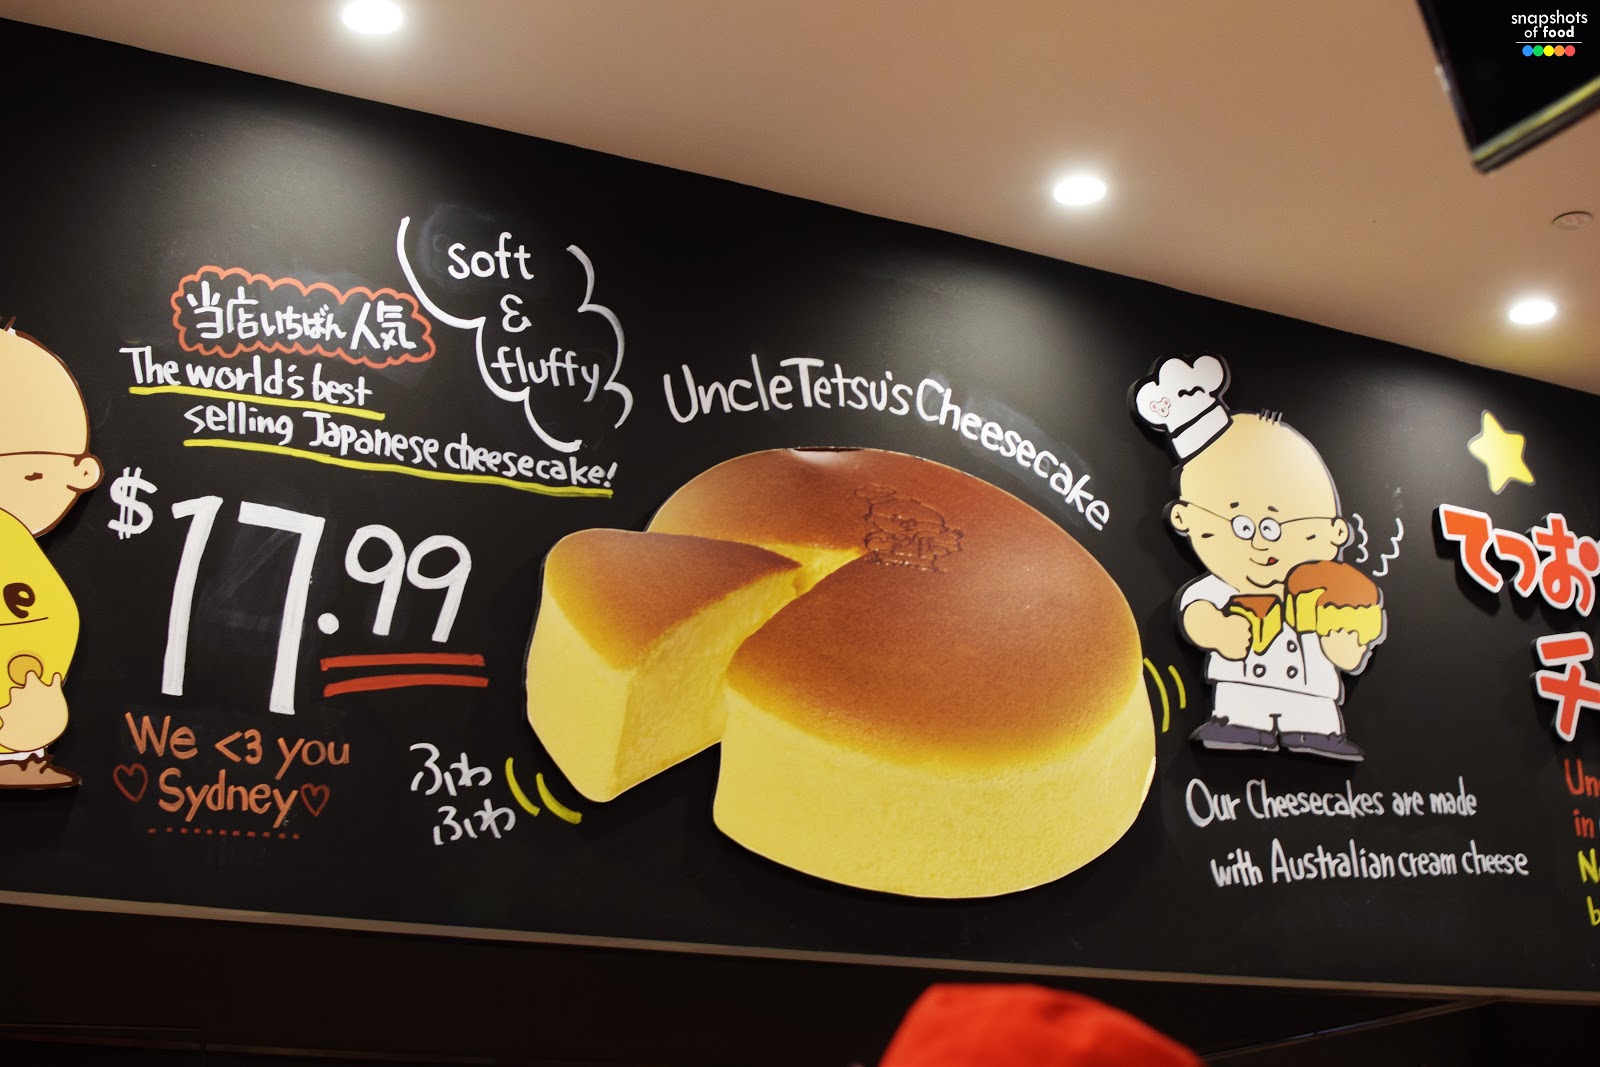 snapshots
of food
soft
&
fluffy
当店いちばん人気
The world's best
selling Japanese cheesecake!
$17.99
We <3 you
Sydney
ふわ
ふわ
Uncle Tetsu's Cheesecake
Our Cheesecakes are made
with Australian cream cheese
てつお
チ
in
e